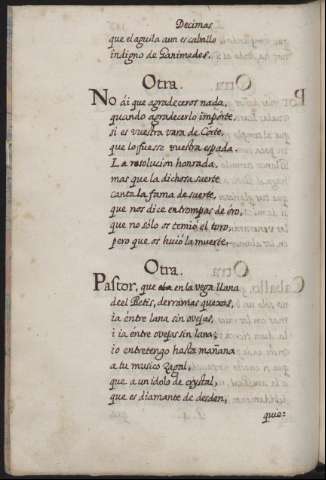 Decimas
que el aguila aun es caballo
indigno de Ganimedes.
Otra.
No ái que agradeceros nada,
quando agradecerlo importe,
si es vuestra vara de Corte,
que lo fuesse vuestra espada.
La resolucion honrada,
mas que la dichosa suerte
canta la fama de suerte,
que nos dice en trompas de oro,
que no sólo se temió el toro,
pero que se huió la muerte.
Otra.
Pastor, que en la vega llana
del Betis, derramas quexas,
ia entre lana sin ovejas,
i ia entre ovejas sin lana;
io entretengo hasta mañana
a tu musico Zagal,
que a un idolo de crystal,
que es diamante de desden,
que: